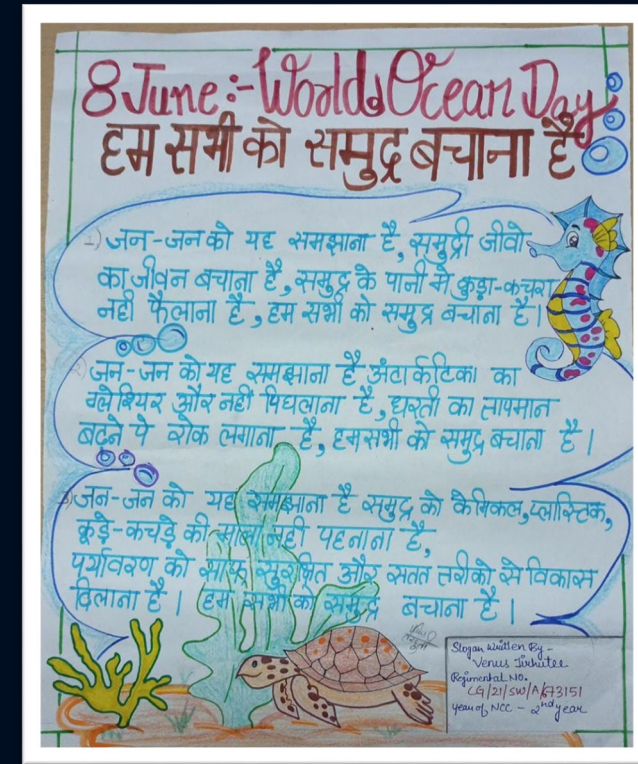 8 June:- World Ocean Day
हम सभी को समुद्र बचाना है
1) जन-जन को यह समझाना है, समुद्री जीवो
का जीवन बचाना है, समुद्र के पानी मे कुड़ा-कचरा
नही फैलाना है, हम सभी को समुद्र बचाना है।
2) जन-जन को यह समझाना है अंटार्कटिका का
ग्लेशियर और नही पिघलाना है, धरती का तापमान
बढ़ने पे रोक लगाना है, हम सभी को समुद्र बचाना है।
3) जन-जन को यह समझाना है समुद्र को केमिकल, प्लास्टिक,
कूड़े-कचड़े की माला नही पहनाना है,
पर्यावरण को साफ, सुरक्षित और सतत तरीको से विकास
दिलाना है। हम सभी को समुद्र बचाना है।
Slogan written By -
Venus Tirhutee
Regimental NO.
CG/21/SW/A/673151
year of NCC - 2nd year